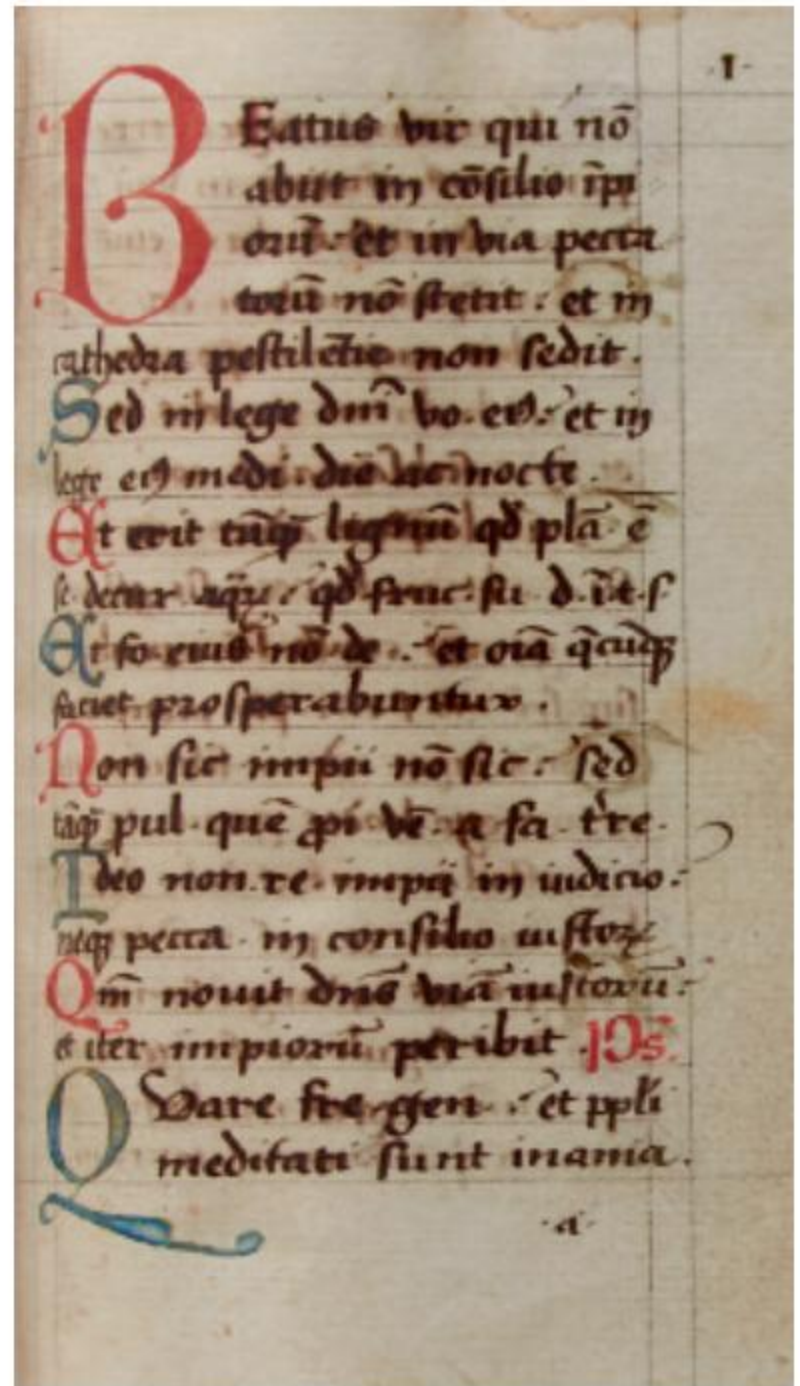 ·I·
BEatus vir qui nō
abiit in cōsilio īpi
orū· et in via pecca
torū nō stetit : et in
cathedra pestilētie non sedit.
Sed in lege dnī vo. eiꝰ: et in
lege eiꝰ medi· die ac nocte.
Et erit tāqꝫ lignū qđ plā· ē
se· decur· aqꝝ: qđ fruc· su· d· ī t· s
Et fo eius nō de· : et oīa q̄cūqꝫ
faciet prosperabuntur.
Non sic impii nō sic: sed
tāqꝫ pul· quē ꝓi· vē· a fa· t're·
Ideo non re· impii in iudicio:
neqꝫ pecca· in consilio iustoꝝ
Qm̄ nouit dn̄s viā iustorū:
et iter impiorū peribit· p̄s.
QVare fre· gen· : et ppl'i
meditati sunt inania.
·a·